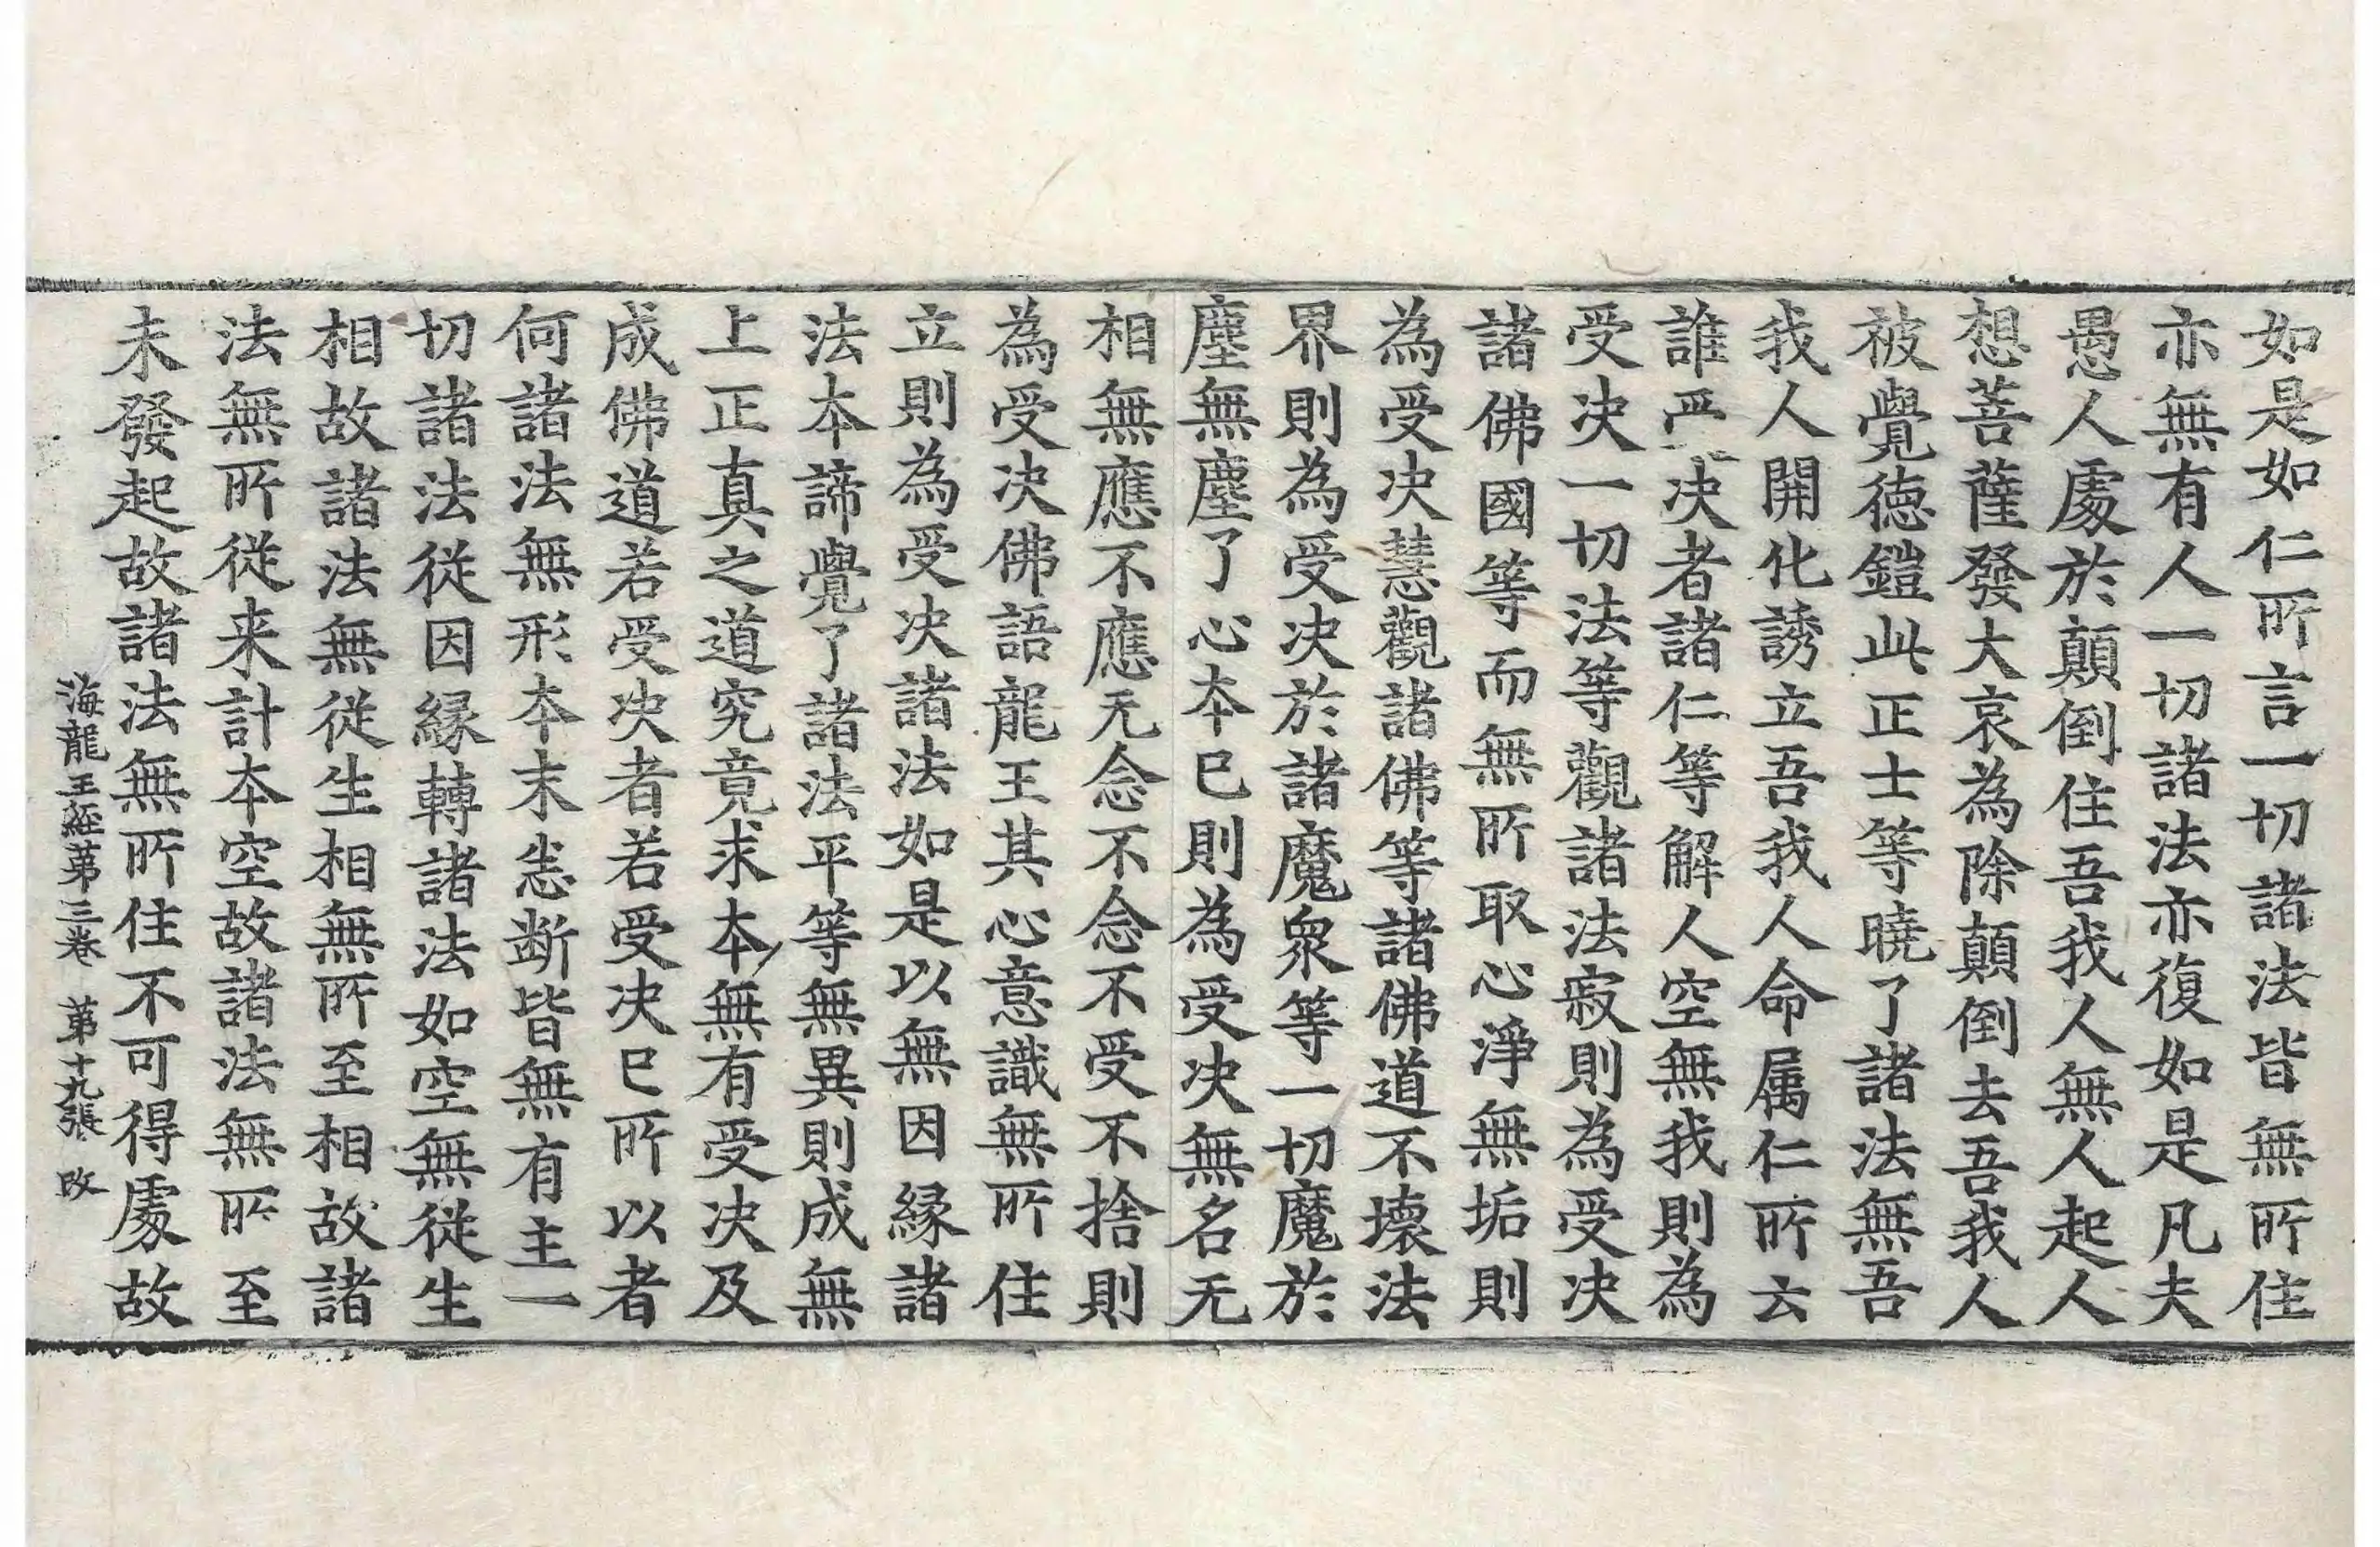 如是如仁所言一切諸法皆無所住
亦無有人一切諸法亦復如是凡夫
愚人處於顛倒住吾我人無人起人
想菩薩發大哀為除顛倒去吾我人
被覺德鎧此正士等曉了諸法無吾
我人開化誘立吾我人命属仁所云
誰受决者諸仁等解人空無我則為
受决一切法等觀諸法寂則為受决
諸佛國等而無所取心淨無垢則
為受决慧觀諸佛等諸佛道不壞法
界則為受决於諸魔衆等一切魔於
塵無塵了心本已則為受决無名无
相無應不應无念不念不受不捨則
為受决佛語龍王其心意識無所住
立則為受决諸法如是以無因縁諸
法本諦覺了諸法平等無異則成無
上正真之道究竟求本無有受决及
成佛道若受决者若受决已所以者
何諸法無形本末恙断皆無有主一
切諸法從因縁轉諸法如空無從生
相故諸法無從生相無所至相故諸
法無所從来計本空故諸法無所至
未發起故諸法無所住不可得處故
海龍王經苐三卷 苐十九張 改